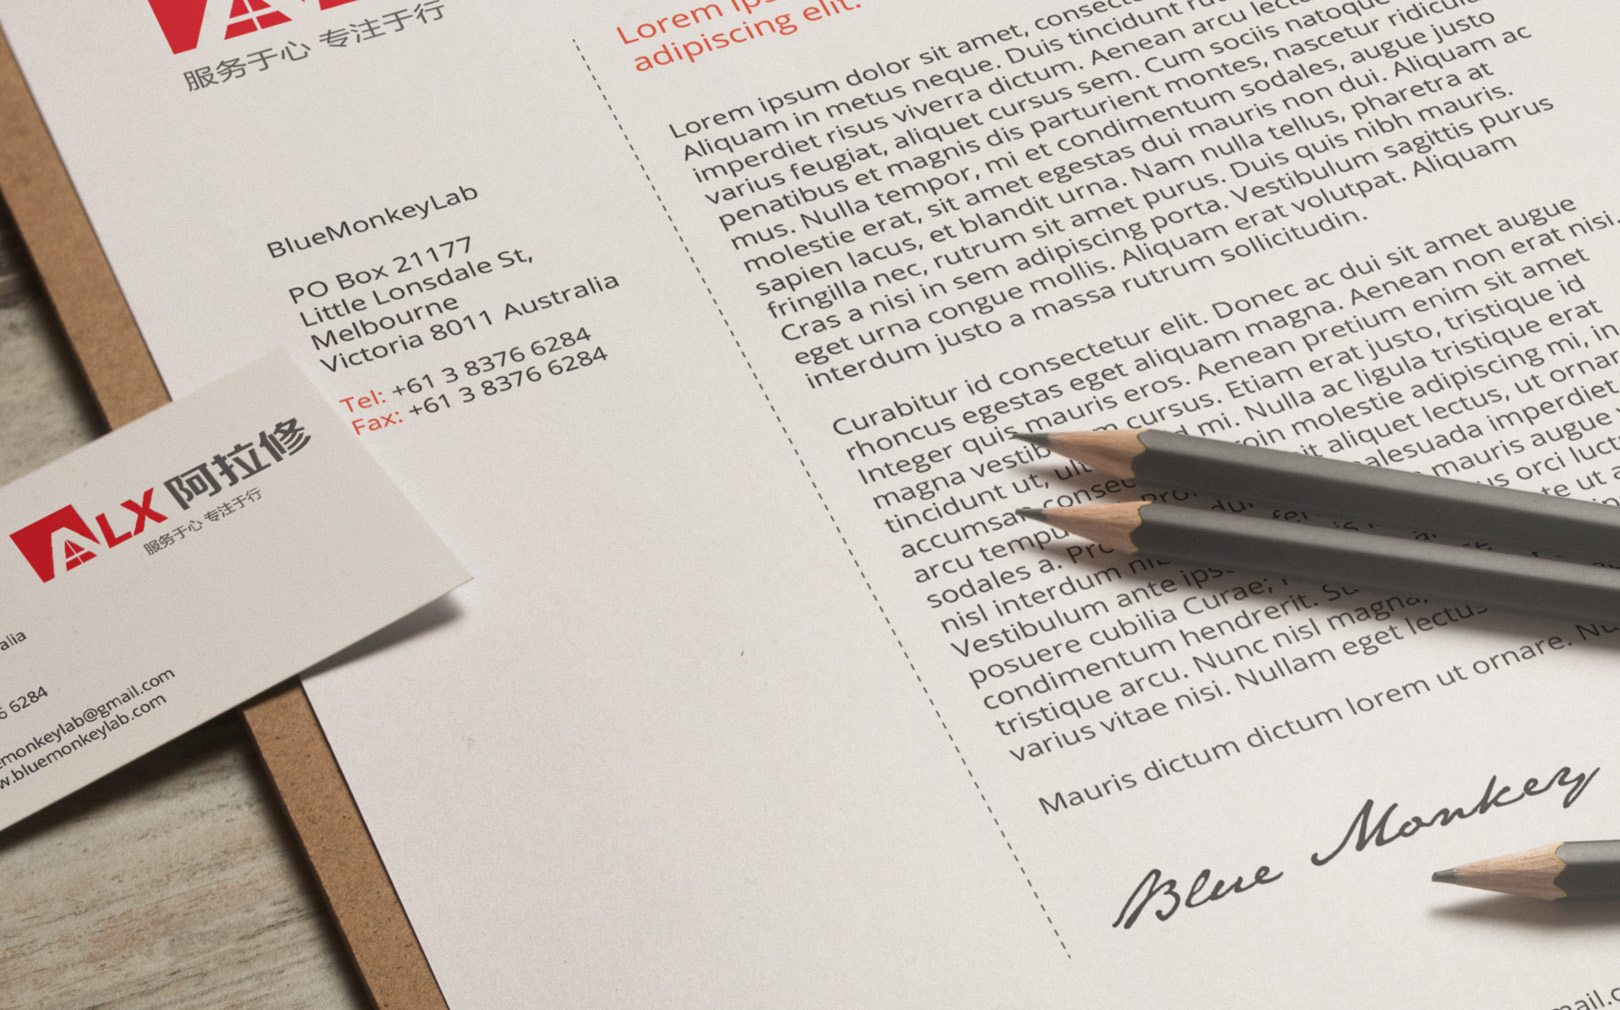 服务于心 专注于行
BlueMonkeyLab
PO Box 21177
Little Lonsdale St,
Melbourne
Victoria 8011 Australia
Tel: +61 3 8376 6284
Fax: +61 3 8376 6284
ALX 阿拉修
服务于心 专注于行
6284
Lorem
adipiscing elit.
Lorem ipsum dolor sit amet,
Aliquam in metus neque. Duis tincidunt
imperdiet risus viverra dictum. Aenean arcu
varius feugiat, aliquet cursus sem. Cum sociis natoque
penatibus et magnis dis parturient montes, nascetur
mus. Nulla tempor, mi et condimentum sodales, augue justo
molestie erat, sit amet egestas dui mauris non dui. Aliquam ac
sapien lacus, et blandit urna. Nam nulla tellus, pharetra at
fringilla nec, rutrum sit amet purus. Duis quis nibh mauris.
Cras a nisi in sem adipiscing porta. Vestibulum sagittis purus
eget urna congue mollis. Aliquam erat volutpat. Aliquam
interdum justo a massa rutrum sollicitudin.
Curabitur id consectetur elit. Donec ac dui sit amet augue
rhoncus egestas eget aliquam magna. Aenean non erat nisi.
Integer quis mauris eros. Aenean pretium enim sit amet
magna cursus. Etiam erat justo, tristique id
tincidunt ut, mi. Nulla ac ligula tristique erat
molestie adipiscing mi, in
arcu aliquet lectus, ut
sodales a. imperdiet
nisl interdum mauris augue
Vestibulum ante orci
posuere cubilia Curae; ut
condimentum hendrerit.
tristique arcu. Nunc nisl magna,
varius vitae nisi. Nullam eget lectus
Mauris dictum dictum lorem ut ornare.
Blue Monkey